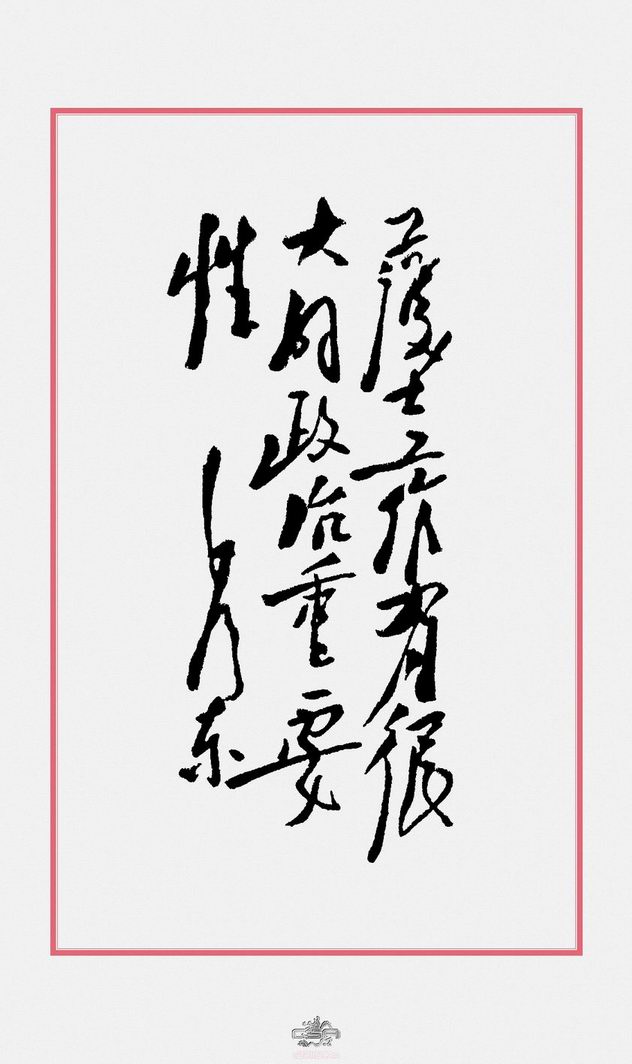 护士工作有很
大的政治重要
性
毛泽东